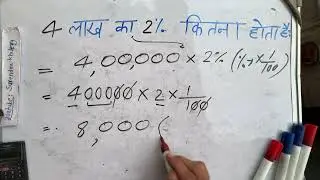 4 लाख का 2% कितना होता है
= 4,00,000 × 2% (% → × 1/100)
= 400000 × 2 × 1/100
= 8,000 (